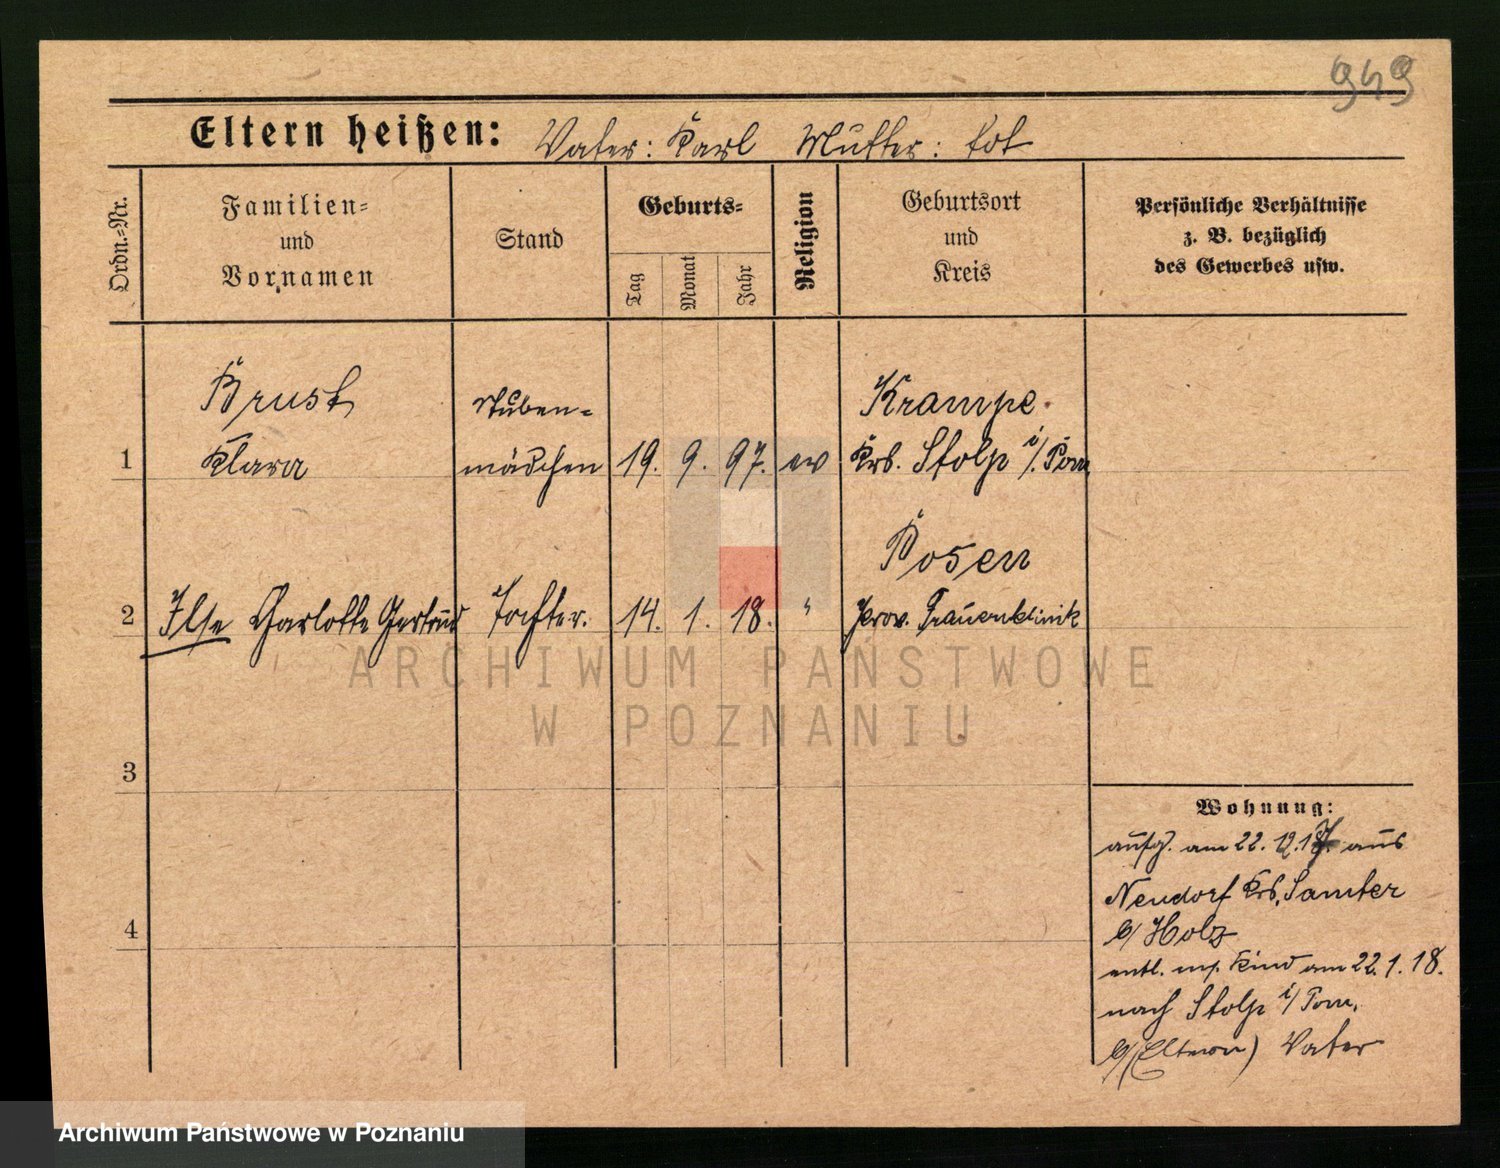 949
Eltern heißen: Vater: Karl Mutter: tot
Ordn.-Nr.
Familien-
und
Vornamen
Stand
Geburts-
Tag
Monat
Jahr
Religion
Geburtsort
und
Kreis
Persönliche Verhältnisse
z. B. bezüglich
des Gewerbes usw.
Brust
Klara
Stuben-
mädchen
1
19. 9. 97. ev
Krampe
Krs. Stolp i/. Pom
2
Ilse Charlotte Gertrud
Tochter.
14. 1. 18. "
Posen
Prov. Frauenklinik
3
4
Wohnung:
aufg. am 22. 12. 17. aus
Neudorf Krs. Samter
b/ Holz
entl. m. Kind am 22. 1. 18.
nach Stolp i/ Pom.
b/ (Eltern) Vater
ARCHIWUM PAŃSTWOWE
W POZNANIU
Archiwum Państwowe w Poznaniu